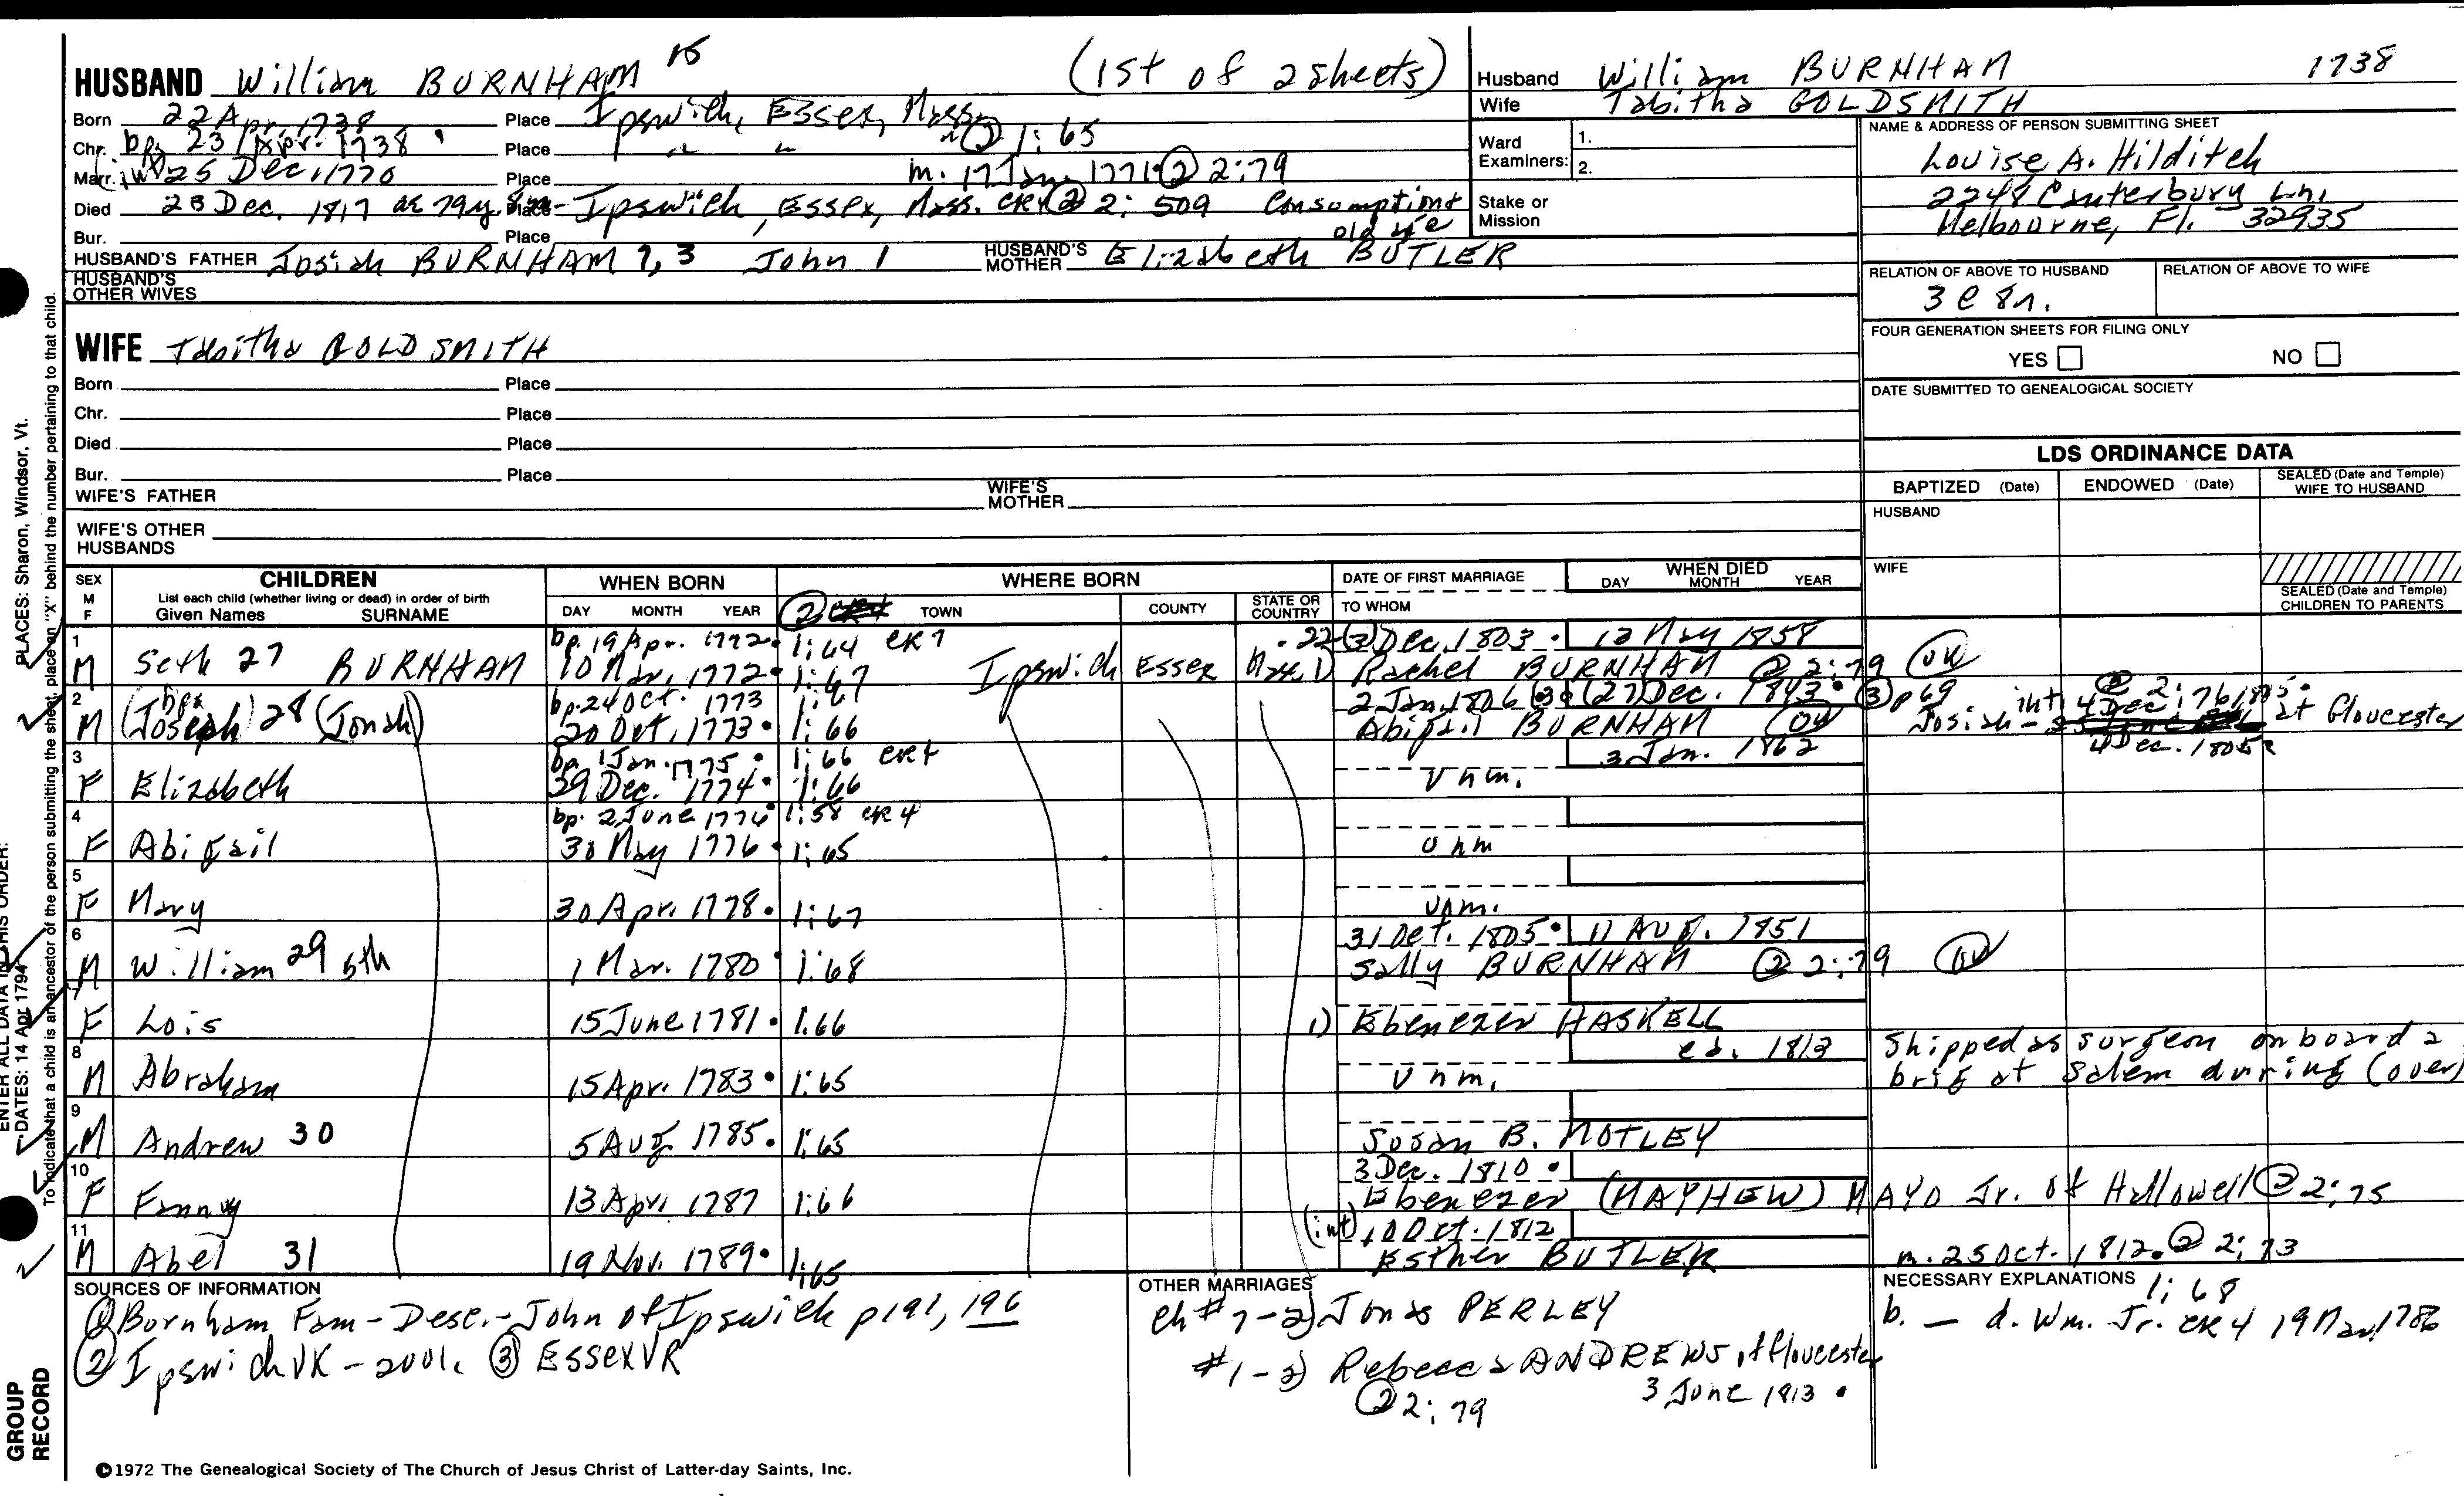 HUSBAND William BURNHAM 15 (1st of 2 sheets)
Born 22 Apr. 1738 Place Ipswich, Essex, Mass.
Chr. bp. 23 Apr. 1738 Place " " " ② 1:65
Marr. (int) 25 Dec. 1770 Place m. 17 Jan. 1771 ② 2:79
Died 23 Dec. 1817 ae 79y. 8m. Place Ipswich, Essex, Mass. CR4 ② 2:509 Consumption & old age
Bur. Place
HUSBAND'S FATHER Josiah BURNHAM 7, 3 John 1 HUSBAND'S MOTHER Elizabeth BUTLER
HUSBAND'S OTHER WIVES
WIFE Tabitha GOLDSMITH
Born Place
Chr. Place
Died Place
Bur. Place
WIFE'S FATHER WIFE'S MOTHER
WIFE'S OTHER HUSBANDS
Husband William BURNHAM 1738
Wife Tabitha GOLDSMITH
Ward Examiners: 1. 2.
Stake or Mission
NAME & ADDRESS OF PERSON SUBMITTING SHEET
Louise A. Hilditch
2244 Canterbury Ln.
Melbourne, Fl. 32935
RELATION OF ABOVE TO HUSBAND RELATION OF ABOVE TO WIFE
FOUR GENERATION SHEETS FOR FILING ONLY
YES NO
DATE SUBMITTED TO GENEALOGICAL SOCIETY
LDS ORDINANCE DATA
BAPTIZED (Date) ENDOWED (Date) SEALED (Date and Temple) WIFE TO HUSBAND
HUSBAND
WIFE
SEALED (Date and Temple) CHILDREN TO PARENTS
SEX M F CHILDREN List each child (whether living or dead) in order of birth Given Names SURNAME
WHEN BORN DAY MONTH YEAR
WHERE BORN ② TOWN COUNTY STATE OR COUNTRY
DATE OF FIRST MARRIAGE TO WHOM
WHEN DIED DAY MONTH YEAR
1 bp. 19 Apr. 1772 1:64 22 (3) Dec. 1803 12 May 1858
M Seth 27 BURNHAM 10 Mar. 1772 1:67 Ipswich Essex Mass. 1) Rachel BURNHAM ② 2:79
2 bp. 24 Oct. 1773 1:67 2 Jan. 1806 (27) Dec. 1843 ③ p69 int. 4 Dec. 1805 ② 2:76
M (Joseph) bp. 28 (Jonah) 20 Oct. 1773 1:66 Abigail BURNHAM Josiah - at Gloucester
4 Dec. 1805
3 bp. 1 Jan. 1775 1:66 CR4 3 Jan. 1862
F Elizabeth 29 Dec. 1774 1:66 Unm.
4 bp. 2 June 1776 1:58 CR4
F Abigail 30 May 1776 1:65 Unm
5
F Mary 30 Apr. 1778 1:67 Unm.
6 31 Oct. 1805 11 Aug. 1851
M William 29 5th 1 Mar. 1780 1:68 Sally BURNHAM ② 2:79
7
F Lois 15 June 1781 1:66 1) Ebenezer HASKELL
8 ca. 1813 Shipped as surgeon on board a
M Abraham 15 Apr. 1783 1:65 Unm. brig at Salem during (over)
9
M Andrew 30 5 Aug. 1785 1:65 Susan B. MOTLEY
10 3 Dec. 1810
F Fanny 13 Apr. 1787 1:66 Ebenezer (MAYHEW) MAYO Jr. of Hallowell ② 2:75
11 (int) 10 Oct. 1812
M Abel 31 19 Nov. 1789 1:65 Esther BUTLER m. 25 Oct. 1812 ② 2:73
SOURCES OF INFORMATION
① Burnham Fam - Desc. - John of Ipswich p 191, 196
② Ipswich VR - 2 vol. ③ Essex VR
OTHER MARRIAGES
Ch #7 - 2) Jonas PERLEY
#1 - 2) Rebecca ANDREWS of Gloucester
② 2:79 3 June 1813
NECESSARY EXPLANATIONS 1:68
b. — d. Wm. Jr. CR4 19 Mar. 1786
©1972 The Genealogical Society of The Church of Jesus Christ of Latter-day Saints, Inc.
ENTER ALL DATA IN THIS ORDER:
DATES: 14 Apr 1794
PLACES: Sharon, Windsor, Vt.
To indicate that a child is an ancestor of the person submitting the sheet, place an "X" behind the number pertaining to that child.
GROUP RECORD